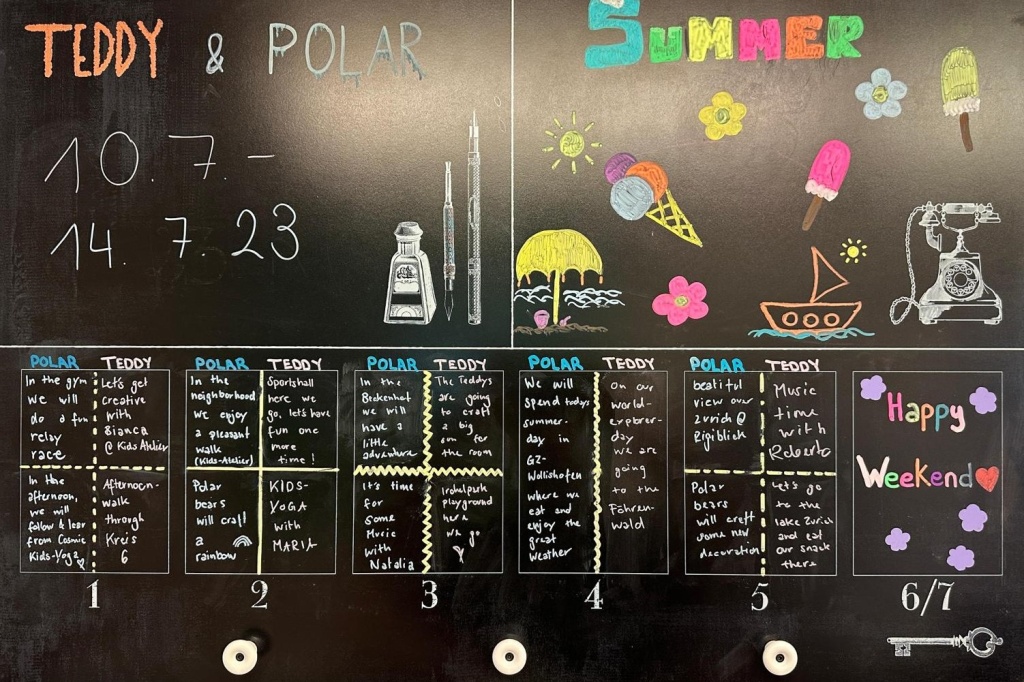 TEDDY & POLAR
10. 7. –
14. 7. 23
SUMMER
POLAR TEDDY
In the gym
we will
do a fun
relay
race
Let's get
creative
with
Bianca
@ Kids Atelier
In the
afternoon,
we will
follow & lear
from Cosmic
Kids-Yoga
Afternoon-
walk
through
Kreis
6
1
POLAR TEDDY
In the
neighborhood
we enjoy
a pleasant
walk
(Kids-Atelier)
Sportshall
here we
go, let's have
fun one
more
time!
Polar
bears
will craft
a
rainbow
KIDS-
YOGA
with
MARIA
2
POLAR TEDDY
In the
Beckenhof
we will
have a
little
adventure
The Teddys
are going
to craft
a big
sun for
the room
It's time
for
some
Music
with
Natalia
Irchelpark
playground
here
we go
3
POLAR TEDDY
We will
spend todays
summer-
day in
GZ-
Wollishofen
where we
eat and
enjoy the
great
weather
on our
world-
explorer-
day
we are
going
to the
Föhren-
wald
4
POLAR TEDDY
beatiful
view over
Zürich @
Rigiblick
Music
time
with
Roberto
Polar
bears
will craft
some new
decoration
Let's go
to the
lake Zurich
and eat
our snack
there
5
Happy
Weekend
6/7